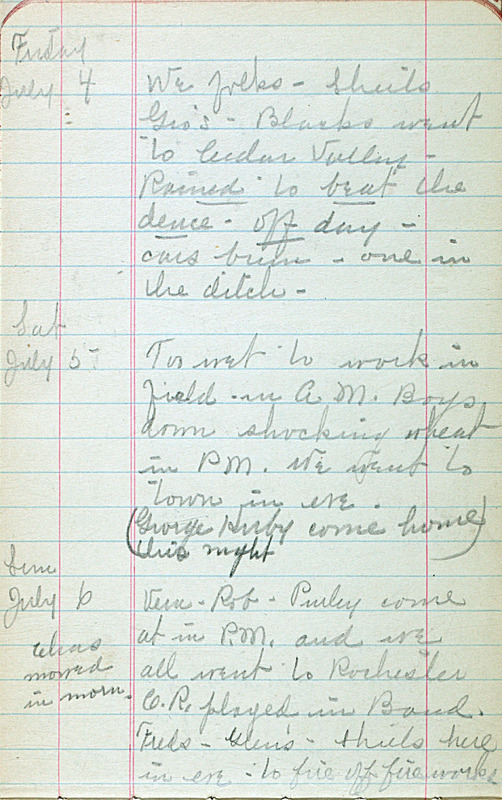 Friday
July 4 We folks - Sheils
Geo's - Blacks went
to Cedar Valley -
Rained to beat the
dence - off day -
cars - one in
the ditch -
Sat
July 5 Too wet to work in
field in A.M. Boys
down shocking wheat
in P.M. We went to
town in eve.
(George Kirby come home
this night)
Sun
July 6 Vern - Rob - Purley come
at in P.M. and we
Chas
moved
in morn.
all went to Rochester
O.R. played in Band.
Freds - Glen's - Shiels here
in eve - to fire off fireworks